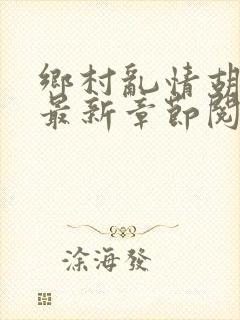 鄉村亂情胡
最新章節閱
涂海發